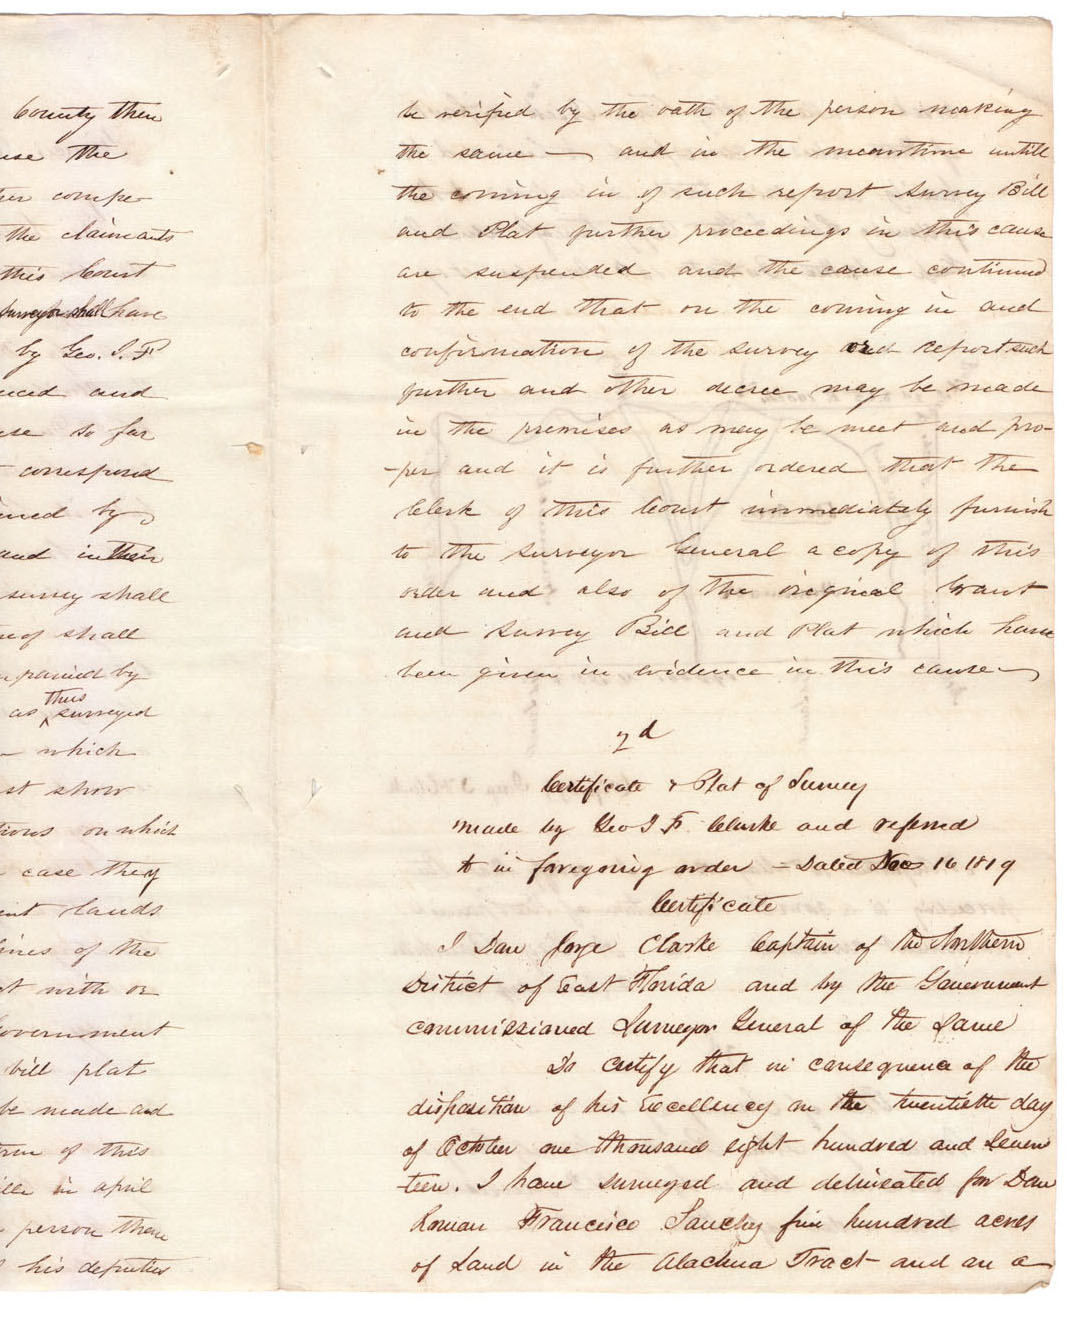 County then
the
compe-
the claimants
this Court
surveyor shall have
by Geo. J. F
and
so far
correspond
by
and in their
survey shall
shall
by
thus
as surveyed
- which
show
on which
case they
lands
lines of the
with or
Government
bill plat
be made and
of this
in april
person then
his deputies
be verified by the oath of the person making
the same — and in the meantime untill
the coming in of such report Survey Bill
and Plat further proceedings in this cause
are suspended and the cause continued
to the end that on the coming in and
confirmation of the survey and report such
further and other decree may be made
in the premises as may be meet and pro-
-per and it is further ordered that the
Clerk of this Court immediately furnish
to the Surveyor General a copy of this
order and also of the original Grant
and Survey Bill and Plat which have
been given in evidence in this cause —
2d
Certificate & Plat of Survey
made by Geo J F Clarke and referred
to in foregoing order - Dated 16 1819
Certificate
I Don Jorge Clarke Captain of the Northern
District of East Florida and by the Government
commissioned Surveyor General of the Same
Do certify that in consequence of the
disposition of his Excellency on the twentieth day
of October one thousand eight hundred and Seven
-teen. I have surveyed and delineated for Don
Roman Francisco Sanchez five hundred acres
of Land in the Alachua Tract and on a